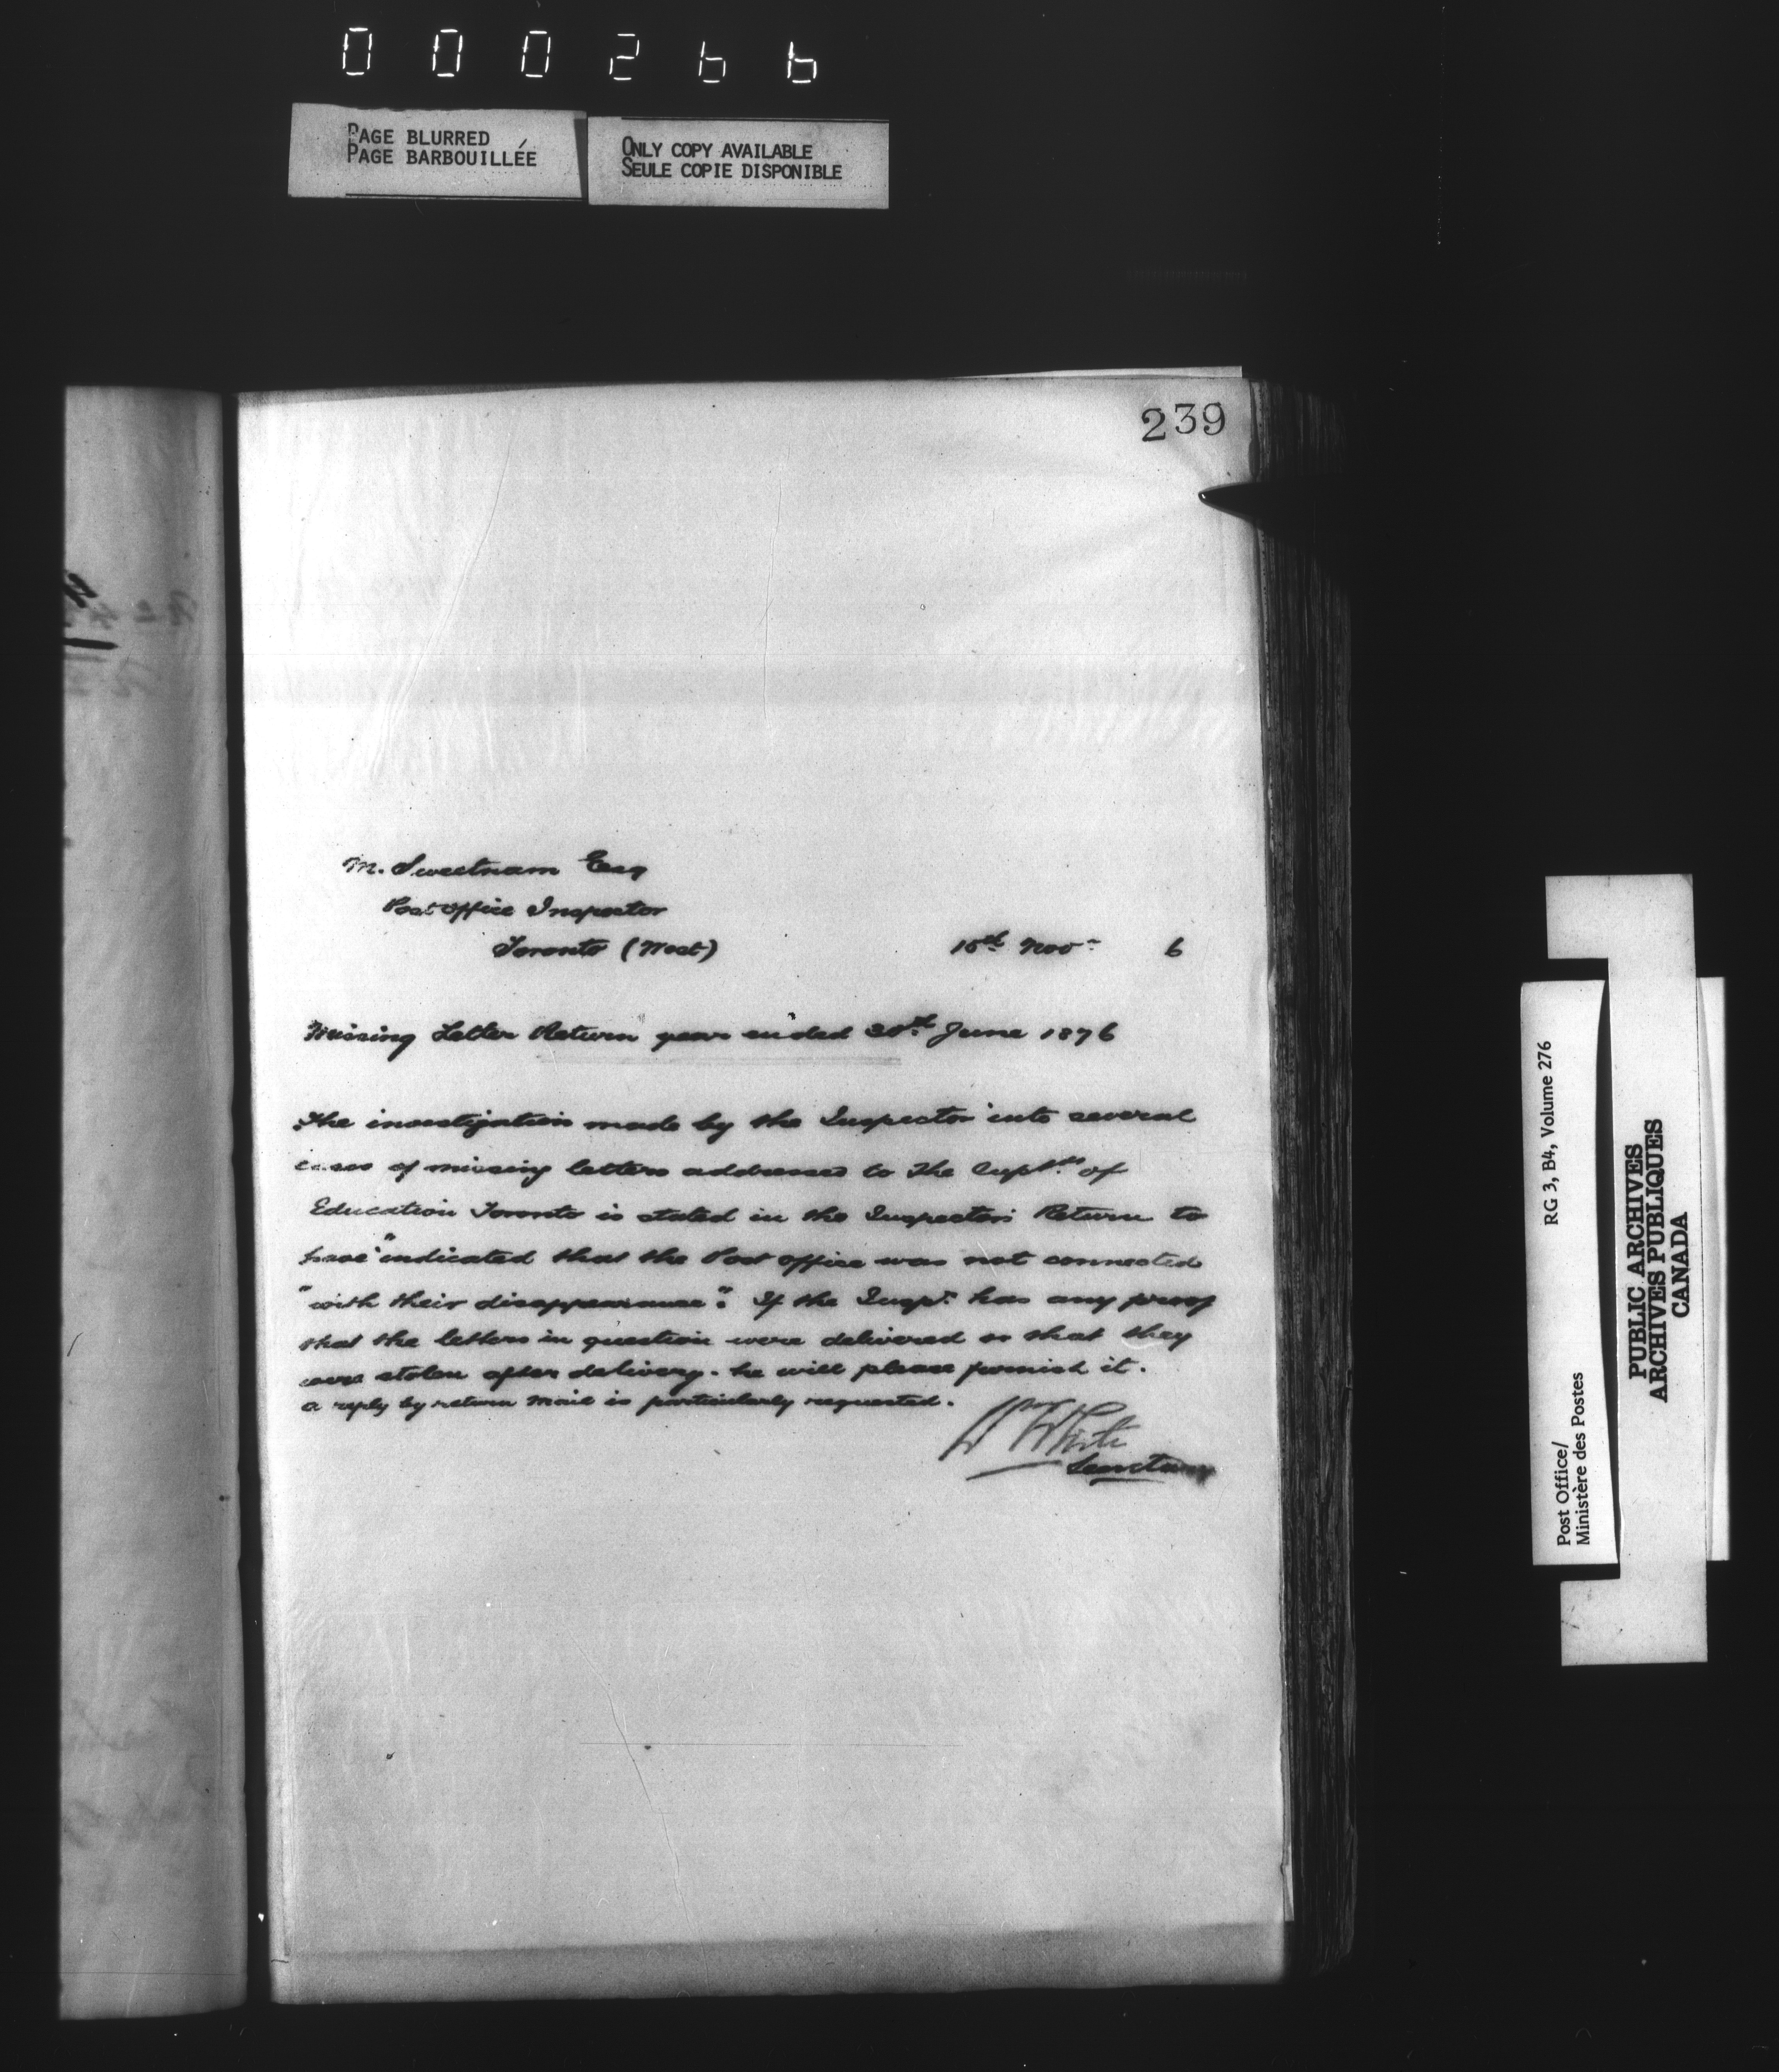 000266
PAGE BLURRED
PAGE BARBOUILLÉE
ONLY COPY AVAILABLE
SEULE COPIE DISPONIBLE
239
M. Sweetnam Esq
Post Office Inspector
Toronto (West)
15th Nov 6
Missing Letter Return year ended 30th June 1876
The investigation made by the Inspector into several
cases of missing letters addressed to the Supt. of
Education Toronto is stated in the Inspectors Return to
have "indicated that the Post Office was not connected
"with their disappearance". If the Inspr. has any proof
that the letters in question were delivered or that they
were stolen after delivery. he will please furnish it.
a reply by return mail is particularly requested.
Wm White
Secretary
RG 3, B4, Volume 276
Post Office/
Ministère des Postes
PUBLIC ARCHIVES
ARCHIVES PUBLIQUES
CANADA